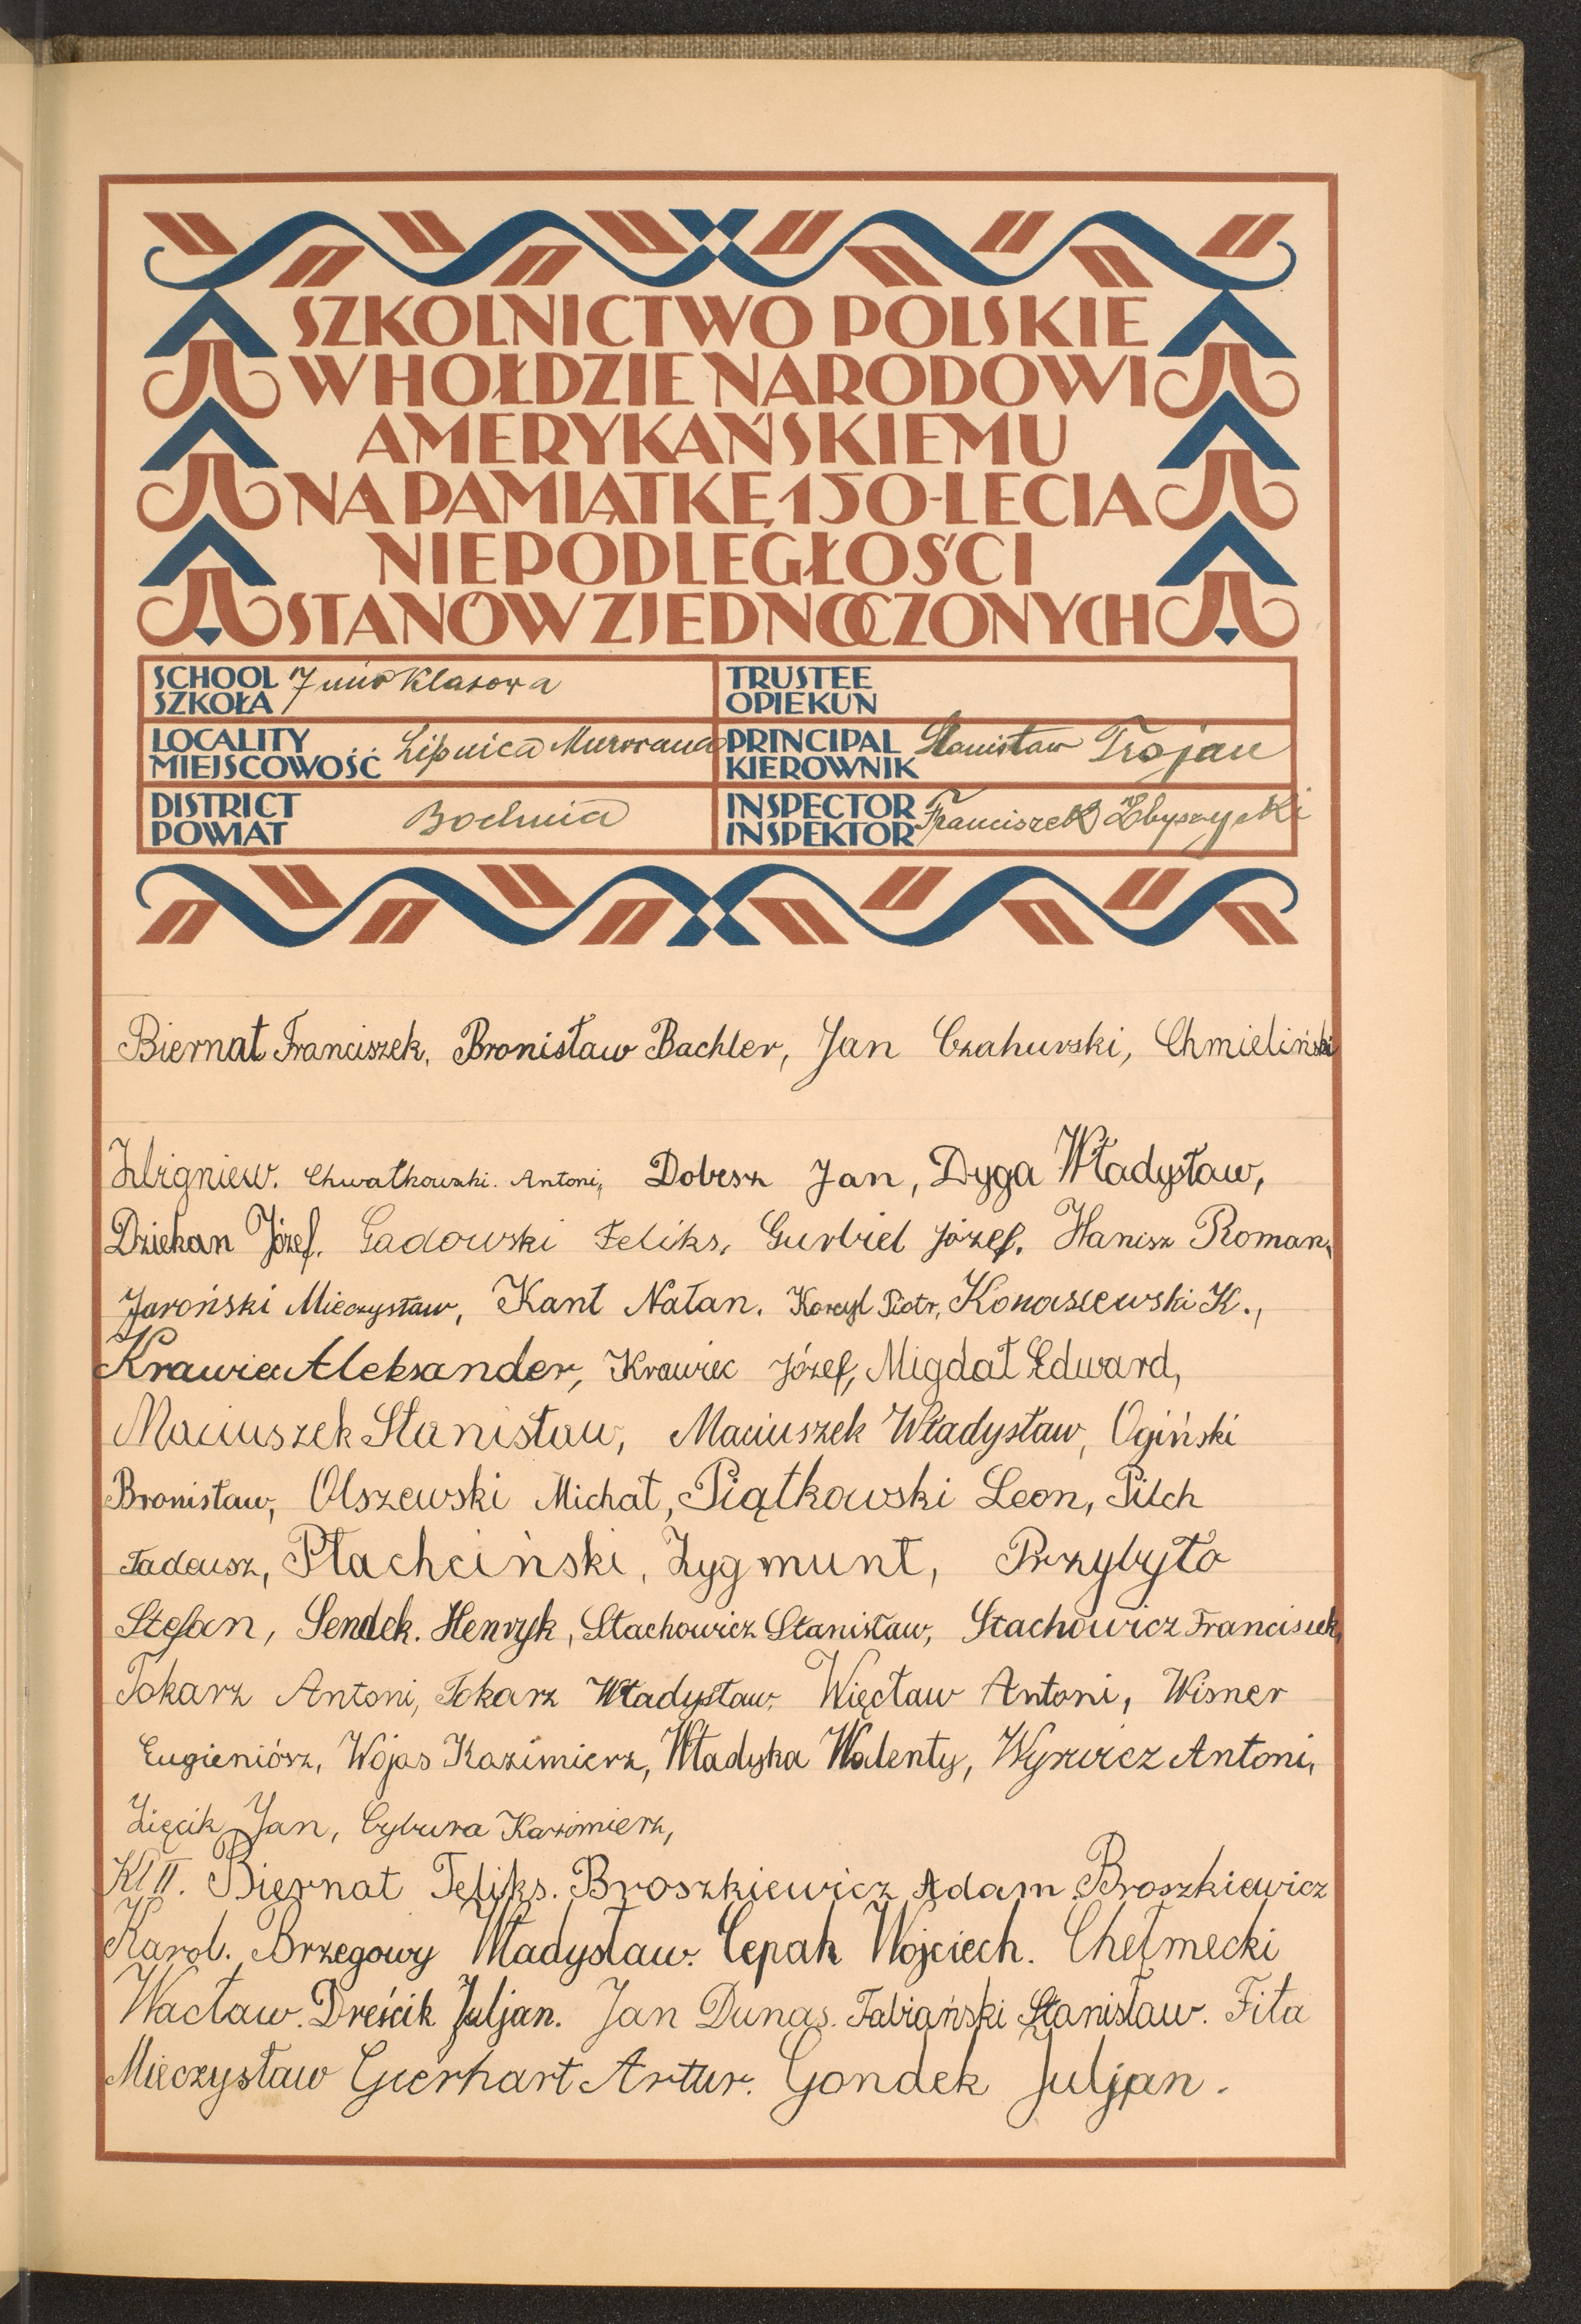 SZKOLNICTWO POLSKIE
W HOŁDZIE NARODOWI
AMERYKAŃSKIEMU
NA PAMIĄTKĘ 150-LECIA
NIEPODLEGŁOŚCI
STANÓW ZJEDNOCZONYCH
SCHOOL
SZKOŁA 7 mio klasowa
TRUSTEE
OPIEKUN
LOCALITY
MIEJSCOWOŚĆ Lipnica Murowana
PRINCIPAL
KIEROWNIK Stanisław Trojan
DISTRICT
POWIAT Bochnia
INSPECTOR
INSPEKTOR Franciszek Zbyszycki
Biernat Franciszek, Bronisław Bachler, Jan Czahurski, Chmieliński
Zbigniew. Chwałkowski. Antoni, Dobesz Jan, Dyga Władysław,
Dziekan Józef. Gadowski Feliks, Gurbiel Józef, Hanisz Roman,
Jaroński Mieczysław, Kant Natan. Korcyl Piotr, Konaszewski K.,
Krawiec Aleksander, Krawiec Józef, Migdał Edward,
Maciuszek Stanisław, Maciuszek Władysław, Ogiński
Bronisław, Olszewski Michał, Piątkowski Leon, Pilch
Tadeusz, Płachciński, Zygmunt, Przybyło
Stefan, Sendek. Henryk, Stachowicz Stanisław, Stachowicz Franciszek,
Tokarz Antoni, Tokarz Władysław, Więcław Antoni, Wisner
Eugieniósz, Wojas Kazimierz, Władyka Walenty, Wyrwicz Antoni,
Zięcik Jan, Cybura Kazimierz,
Kl II. Biernat Feliks. Broszkiewicz Adam Broszkiewicz
Karol. Brzegowy Władysław. Cepak Wojciech. Chełmecki
Wacław. Dreścik Juljan. Jan Dunas. Fabiański Stanisław. Fita
Mieczysław Gierhart Artur. Gondek Juljan.